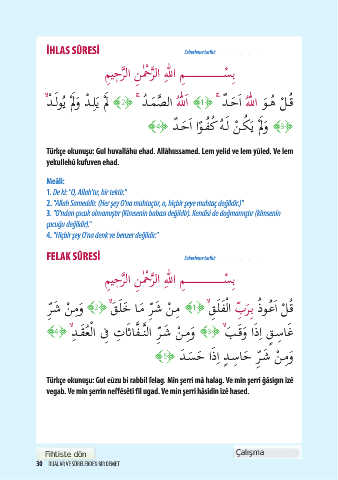 İHLAS SÛRESİ
Ezberleme tarihi:
بِسْــــــــــمِ اللهِ الرَّحْمٰنِ الرَّحِيمِ
قُلْ هُوَ اللهُ اَحَدٌ ﴿1﴾ اَللهُ الصَّمَدُ ﴿2﴾ لَمْ يَلِدْ وَلَمْ يُولَدْ
﴿3﴾ وَلَمْ يَكُنْ لَهُ كُفُوًا اَحَدٌ ﴿4﴾
Türkçe okunuşu: Gul huvallâhu ehad. Allâhussamed. Lem yelid ve lem yüled. Ve lem
yekullehü kufuven ehad.
Meâli:
1. De ki: "O, Allah'tır, bir tektir."
2. "Allah Sameddir. (Her şey O'na muhtaçtır, o, hiçbir şeye muhtaç değildir.)"
3. "O'ndan çocuk olmamıştır (Kimsenin babası değildir). Kendisi de doğmamıştır (kimsenin
çocuğu değildir)."
4. "Hiçbir şey O'na denk ve benzer değildir."
FELAK SÛRESİ
Ezberleme tarihi:
بِسْــــــــــمِ اللهِ الرَّحْمٰنِ الرَّحِيمِ
قُلْ اَعُوذُ بِرَبِّ الْفَلَقِ ﴿1﴾ مِنْ شَرِّ مَا خَلَقَ ﴿2﴾ وَمِنْ شَرِّ
غَاسِقٍ اِذَا وَقَبَ ﴿3﴾ وَمِنْ شَرِّ النَّفَّاثَاتِ فِى الْعُقَدِ ﴿4﴾
وَمِنْ شَرِّ حَاسِدٍ اِذَا حَسَدَ ﴿5﴾
Türkçe okunuşu: Gul eûzu bi rabbil felag. Min şerri mâ halag. Ve min şerri ğâsigın izê
vegab. Ve min şerrin neffêsêti fil ugad. Ve min şerri hâsidin izê hased.
Fihriste dön
Çalışma
30